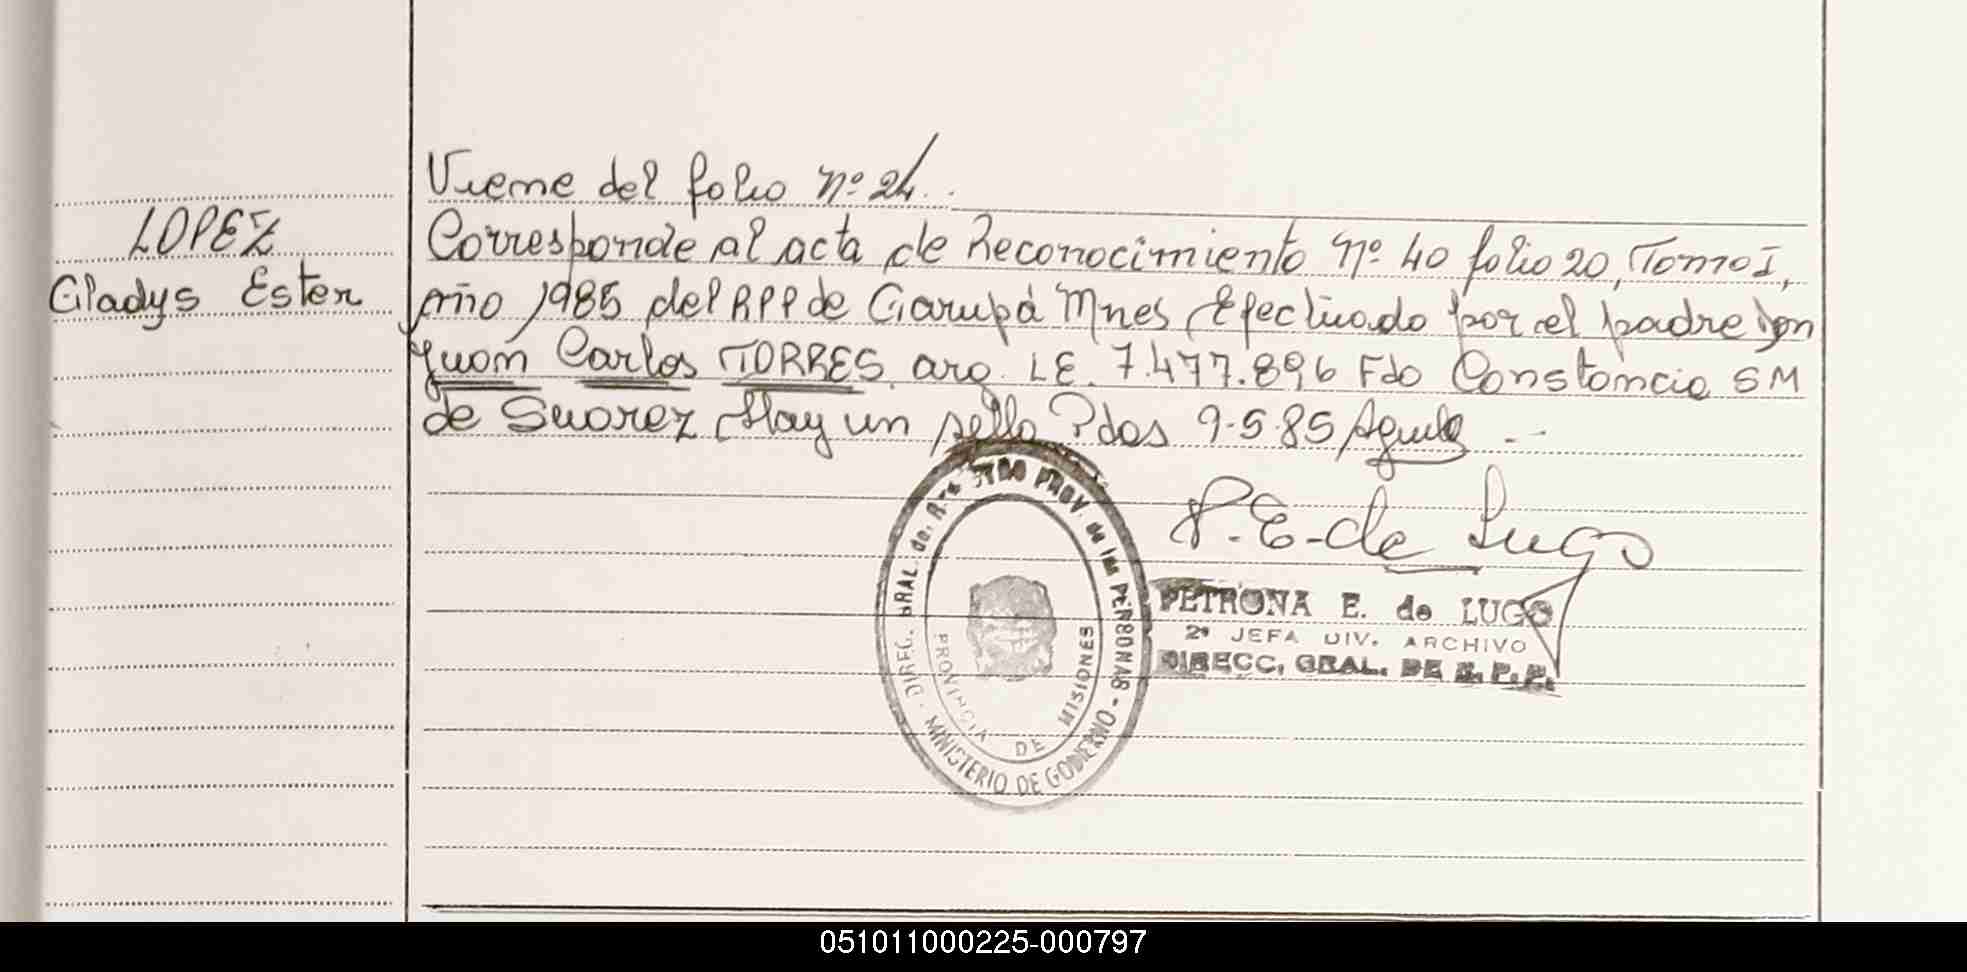 Viene del folio nº 24..
LOPEZ
Gladys Ester
Corresponde al acta de Reconocimiento nº 40 folio 20, Tomo I,
año 1985 del RPP de Garupá Mnes, Efectuado por el padre don
Juan Carlos TORRES, arg. LE. 7.477.896 Fdo Constancia SM
de Suarez, Hay un sello Pdas 9-5-85 Aguila .--
P.E. de Lugo
DIREC. GRAL. del PROV. de las PERSONAS - MINISTERIO DE GOBIERNO -
PROVINCIA DE MISIONES
PETRONA E. de LUGO
2ª JEFA DIV. ARCHIVO
DIRECC, GRAL. DE R. P. P.
051011000225-000797